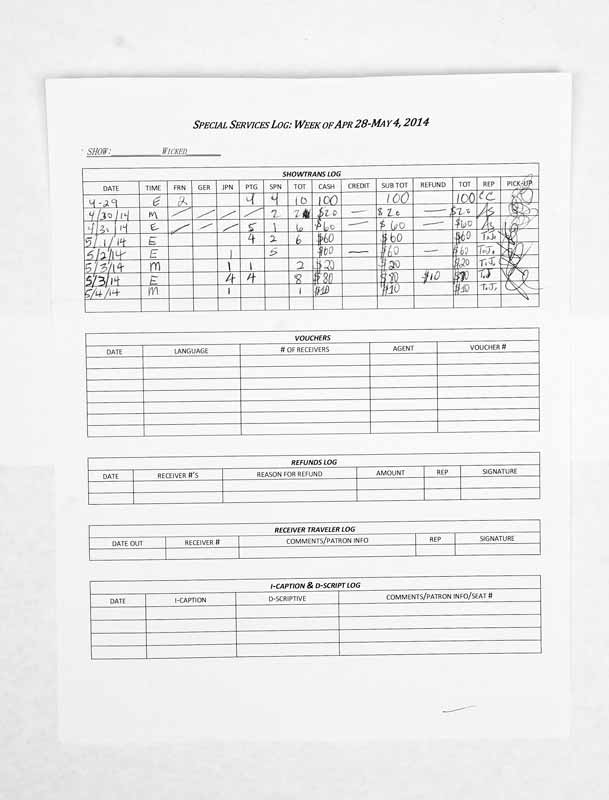 SPECIAL SERVICES LOG: WEEK OF APR 28-MAY 4, 2014
SHOW: WICKED
SHOWTRANS LOG
DATE TIME FRN GER JPN PTG SPN TOT CASH CREDIT SUB TOT REFUND TOT REP PICK-UP
4-29 E 2 4 4 10 100 100 100 CC
4/30/14 M / / / / 2 2 $20 — $20 — $20
4/31/14 E / / / 5 1 6 $60 — $60 — $60
5/1/14 E 4 2 6 $60 $60 $60 T.J.
5/2/14 E 1 5 $60 — $60 — $60 T.J.
5/3/14 M 1 1 2 $20 $20 $20 T.J.
5/3/14 E 4 4 8 $80 $80 $10 T.J.
5/4/14 M 1 1 $10 $10 $10 T.J.
VOUCHERS
DATE LANGUAGE # OF RECEIVERS AGENT VOUCHER #
REFUNDS LOG
DATE RECEIVER #'S REASON FOR REFUND AMOUNT REP SIGNATURE
RECEIVER TRAVELER LOG
DATE OUT RECEIVER # COMMENTS/PATRON INFO REP SIGNATURE
I-CAPTION & D-SCRIPT LOG
DATE I-CAPTION D-SCRIPTIVE COMMENTS/PATRON INFO/SEAT #